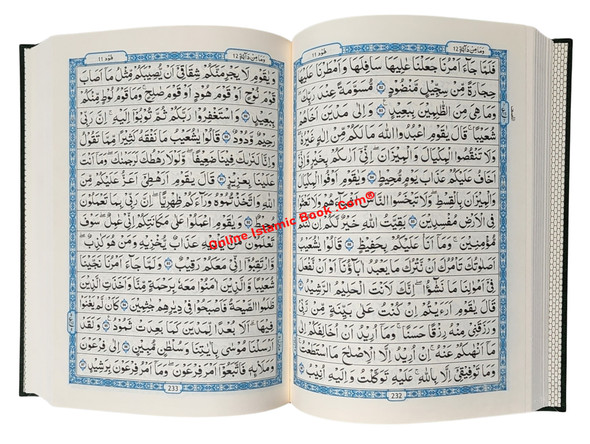 وَمَا مِنْ دَآبَّةٍ ١٢
هُوْد ١١
فَلَمَّا جَآءَ اَمْرُنَا جَعَلْنَا عَالِيَهَا سَافِلَهَا وَاَمْطَرْنَا عَلَيْهَا
حِجَارَةً مِّنْ سِجِّيْلٍ مَّنْضُوْدٍ ۝٨٢ مُّسَوَّمَةً عِنْدَ رَبِّكَ
وَمَا هِيَ مِنَ الظّٰلِمِيْنَ بِبَعِيْدٍ ۝٨٣ وَاِلٰى مَدْيَنَ اَخَاهُمْ
شُعَيْبًا ؕ قَالَ يٰقَوْمِ اعْبُدُوا اللّٰهَ مَا لَكُمْ مِّنْ اِلٰهٍ غَيْرُهٗ ؕ
وَلَا تَنْقُصُوا الْمِكْيَالَ وَالْمِيْزَانَ اِنِّيْۤ اَرٰىكُمْ بِخَيْرٍ وَّاِنِّيْۤ
اَخَافُ عَلَيْكُمْ عَذَابَ يَوْمٍ مُّحِيْطٍ ۝٨٤ وَيٰقَوْمِ اَوْفُوا الْمِكْيَالَ
وَالْمِيْزَانَ بِالْقِسْطِ وَلَا تَبْخَسُوا النَّاسَ اَشْيَآءَهُمْ وَلَا تَعْثَوْا
فِى الْاَرْضِ مُفْسِدِيْنَ ۝٨٥ بَقِيَّتُ اللّٰهِ خَيْرٌ لَّكُمْ اِنْ كُنْتُمْ
مُّؤْمِنِيْنَ ۚ وَمَاۤ اَنَا عَلَيْكُمْ بِحَفِيْظٍ ۝٨٦ قَالُوْا يٰشُعَيْبُ
اَصَلٰوتُكَ تَاْمُرُكَ اَنْ نَّتْرُكَ مَا يَعْبُدُ اٰبَآؤُنَاۤ اَوْ اَنْ نَّفْعَلَ
فِيْۤ اَمْوَالِنَا مَا نَشٰٓؤُا ؕ اِنَّكَ لَاَنْتَ الْحَلِيْمُ الرَّشِيْدُ ۝٨٧
قَالَ يٰقَوْمِ اَرَءَيْتُمْ اِنْ كُنْتُ عَلٰى بَيِّنَةٍ مِّنْ رَّبِّيْ
وَرَزَقَنِيْ مِنْهُ رِزْقًا حَسَنًا ؕ وَمَاۤ اُرِيْدُ اَنْ اُخَالِفَكُمْ اِلٰى
مَاۤ اَنْهٰىكُمْ عَنْهُ ؕ اِنْ اُرِيْدُ اِلَّا الْاِصْلَاحَ مَا اسْتَطَعْتُ ؕ
وَمَا تَوْفِيْقِيْۤ اِلَّا بِاللّٰهِ ؕ عَلَيْهِ تَوَكَّلْتُ وَاِلَيْهِ اُنِيْبُ ۝٨٨
232
وَمَا مِنْ دَآبَّةٍ ١٢
هُوْد ١١
وَيٰقَوْمِ لَا يَجْرِمَنَّكُمْ شِقَاقِيْۤ اَنْ يُّصِيْبَكُمْ مِّثْلُ مَاۤ اَصَابَ
قَوْمَ نُوْحٍ اَوْ قَوْمَ هُوْدٍ اَوْ قَوْمَ صٰلِحٍ ؕ وَمَا قَوْمُ لُوْطٍ مِّنْكُمْ
بِبَعِيْدٍ ۝٨٩ وَاسْتَغْفِرُوْا رَبَّكُمْ ثُمَّ تُوْبُوْۤا اِلَيْهِ ؕ اِنَّ رَبِّيْ
رَحِيْمٌ وَّدُوْدٌ ۝٩٠ قَالُوْا يٰشُعَيْبُ مَا نَفْقَهُ كَثِيْرًا مِّمَّا تَقُوْلُ
وَاِنَّا لَنَرٰىكَ فِيْنَا ضَعِيْفًا ۚ وَلَوْلَا رَهْطُكَ لَرَجَمْنٰكَ ؗ وَمَاۤ اَنْتَ
عَلَيْنَا بِعَزِيْزٍ ۝٩١ قَالَ يٰقَوْمِ اَرَهْطِيْۤ اَعَزُّ عَلَيْكُمْ مِّنَ
اللّٰهِ ؕ وَاتَّخَذْتُمُوْهُ وَرَآءَكُمْ ظِهْرِيًّا ؕ اِنَّ رَبِّيْ بِمَا تَعْمَلُوْنَ
مُحِيْطٌ ۝٩٢ وَيٰقَوْمِ اعْمَلُوْا عَلٰى مَكَانَتِكُمْ اِنِّيْ عَامِلٌ ؕ سَوْفَ
تَعْلَمُوْنَ ۙ مَنْ يَّاْتِيْهِ عَذَابٌ يُّخْزِيْهِ وَمَنْ هُوَ كَاذِبٌ ؕ
وَارْتَقِبُوْۤا اِنِّيْ مَعَكُمْ رَقِيْبٌ ۝٩٣ وَلَمَّا جَآءَ اَمْرُنَا نَجَّيْنَا
شُعَيْبًا وَّالَّذِيْنَ اٰمَنُوْا مَعَهٗ بِرَحْمَةٍ مِّنَّا وَاَخَذَتِ الَّذِيْنَ
ظَلَمُوا الصَّيْحَةُ فَاَصْبَحُوْا فِيْ دِيَارِهِمْ جٰثِمِيْنَ ۝٩٤ كَاَنْ لَّمْ يَغْنَوْا
فِيْهَا ؕ اَلَا بُعْدًا لِّمَدْيَنَ كَمَا بَعِدَتْ ثَمُوْدُ ۝٩٥ وَلَقَدْ
اَرْسَلْنَا مُوْسٰى بِاٰيٰتِنَا وَسُلْطٰنٍ مُّبِيْنٍ ۝٩٦ اِلٰى فِرْعَوْنَ
وَمَلَا۟ئِهٖ فَاتَّبَعُوْۤا اَمْرَ فِرْعَوْنَ ۚ وَمَاۤ اَمْرُ فِرْعَوْنَ بِرَشِيْدٍ ۝٩٧
233
Online Islamic Book .Com®